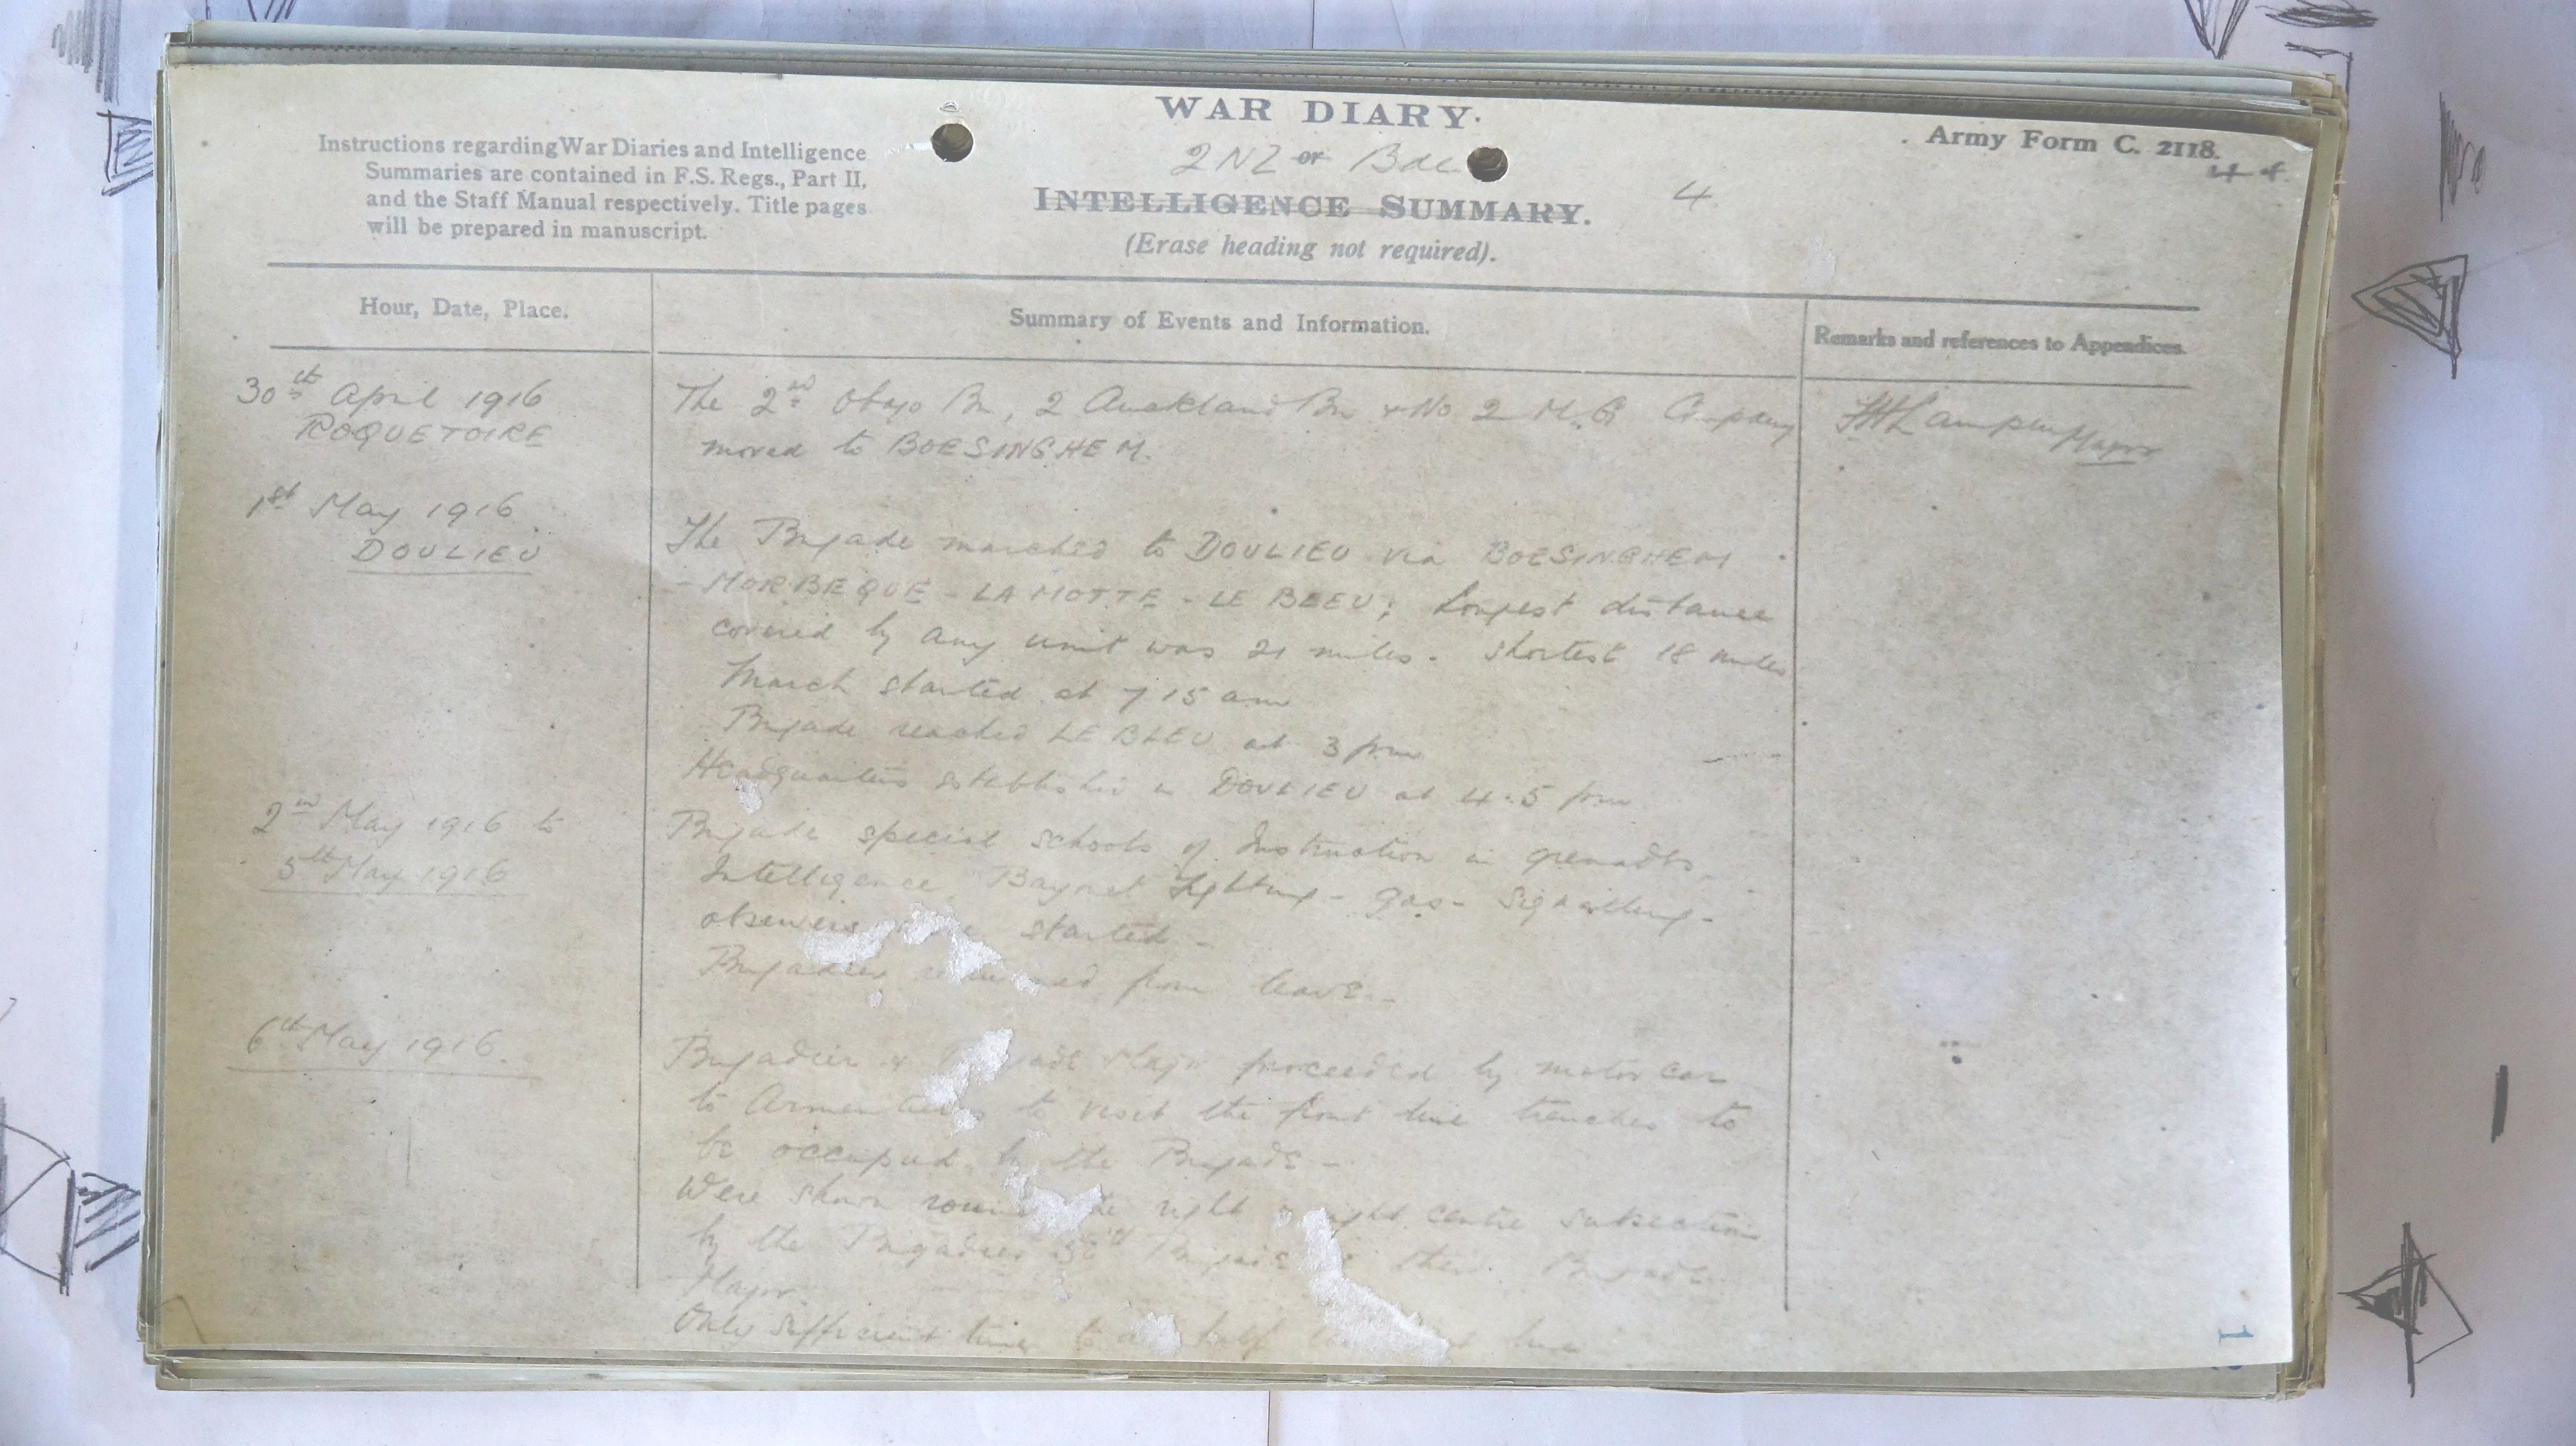 WAR DIARY.
Army Form C. 2118.
Instructions regarding War Diaries and Intelligence
Summaries are contained in F.S. Regs., Part II,
and the Staff Manual respectively. Title pages
will be prepared in manuscript.
2 NZ or Bde
INTELLIGENCE SUMMARY.
4
(Erase heading not required).
Hour, Date, Place.
Summary of Events and Information.
Remarks and references to Appendices.
30th April 1916
ROQUETOIRE
The 2nd Otago Bn, 2 Auckland Bn & No 2 M.G Company
moved to BOESINGHEM.
Major
1st May 1916
DOULIEU
The Brigade marched to DOULIEU via BOESINGHEM
- MORBEQUE - LA MOTTE - LE BLEU; Longest distance
covered by any unit was 21 miles. Shortest 18 miles
March started at 7.15 am
Brigade reached LE BLEU at 3 pm
Headquarters established in DOULIEU at 4.5 pm
2nd May 1916 to
5th May 1916
Brigade special schools of Instruction in grenades
Intelligence Bayonet fighting - gas - signalling -
observers started -
Brigadier from leave -
6th May 1916.
Brigadier & Major proceeded by motor car
to to visit the front line trenches to
be occupied by the Brigade -
Were shown the right centre subsections
by the Brigadier Brigade & their Brigade
Major
Only sufficient time to half line
1